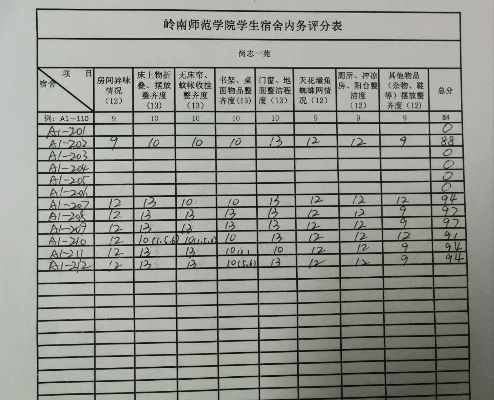 岭南师范学院学生宿舍内务评分表
尚志一苑
项目 宿舍 房间异味情况(12) 床上物折叠、摆放整齐度(13) 无床帘、蚊帐收挂整齐度(13) 书架、桌面物品整齐度(13) 门窗、地面整洁程度(13) 天花墙角蜘蛛网情况(12) 厕所、冲凉房、阳台整洁度(12) 其他物品(杂物、鞋等)摆放整齐度(12) 总分
例: A1-110 9 10 10 10 9 9 9 9 84
A1-201 0
A1-202 9 10 10 10 13 12 12 9 88
A1-203 0
A1-204 0
A1-205 0
A1-206 0
A1-207 12 13 10 10 13 12 12 12 94
A1-208 12 13 13 13 13 12 12 9 97
A1-209 12 13 13 13 13 12 12 9 97
A1-210 12 10(1.5.6) 10(1.5.6) 10 13 12 12 12 91
A1-211 12 13 13 10 10 12 12 9 94
A1-212 12 13 13 10(5.6) 13 12 12 9 94